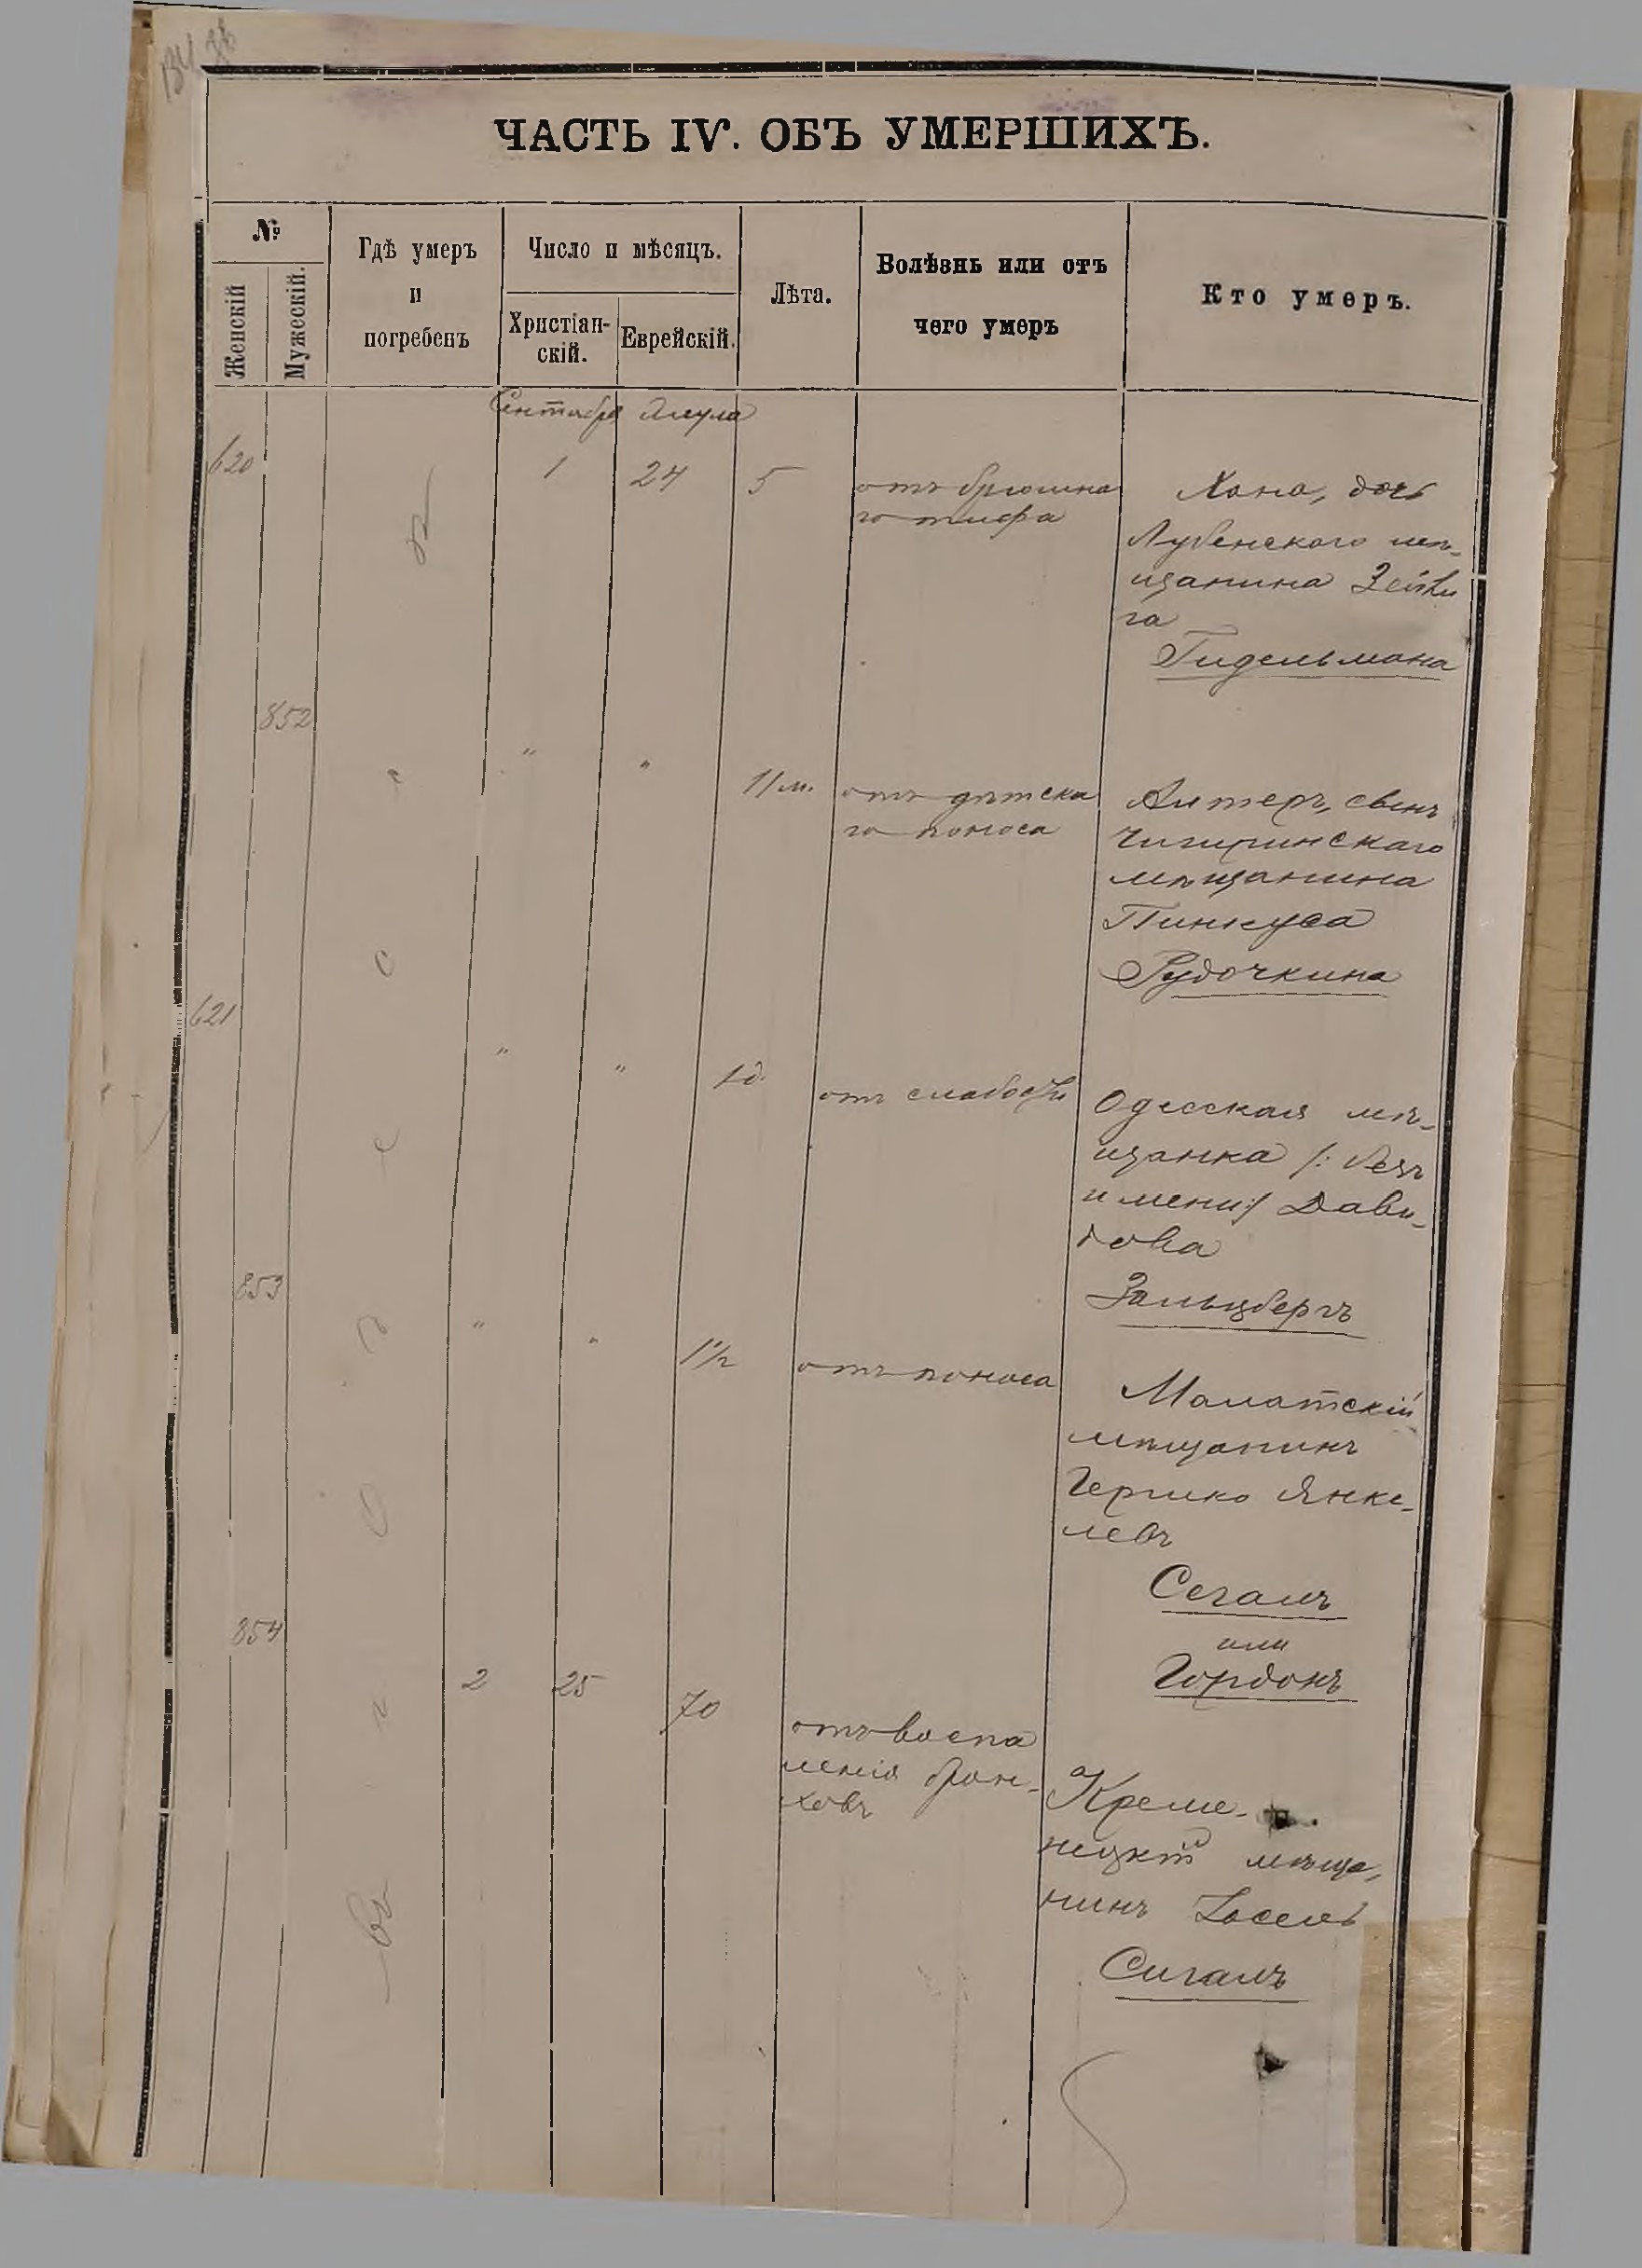 ЧАСТЬ IV. ОБЪ УМЕРШИХЪ.
№
Женскій
Мужескій.
Гдѣ умеръ
и
погребенъ
Число и мѣсяцъ.
Христіан-
скій.
Еврейскій.
Лѣта.
Болѣзнь или отъ
чего умеръ
Кто умеръ.
Сентября Элула
620
1 24 5
отъ брюшна
го тифа
Хана, дочь
Лубенскаго мѣ-
щанина Зейли
га
Гидельмана
852
" " 11 м.
отъ дѣтска
го поноса
Алтеръ, сынъ
Чигиринскаго
мѣщанина
Пинкуса
Рудочкина
621
" " 1 д.
отъ слабости
Одесская мѣ-
щанка /: безъ
имени:/ Дави-
дова
Зальцбергъ
853
" " 1½
отъ поноса
мѣщанинъ
Гершко Янке-
левъ
Сегалъ
или
Гордонъ
854
2 25 70
отъ воспа
ленія брон-
ховъ
Креме-
нецкій мѣща-
нинъ Іосель
Сигалъ
въ Одессѣ